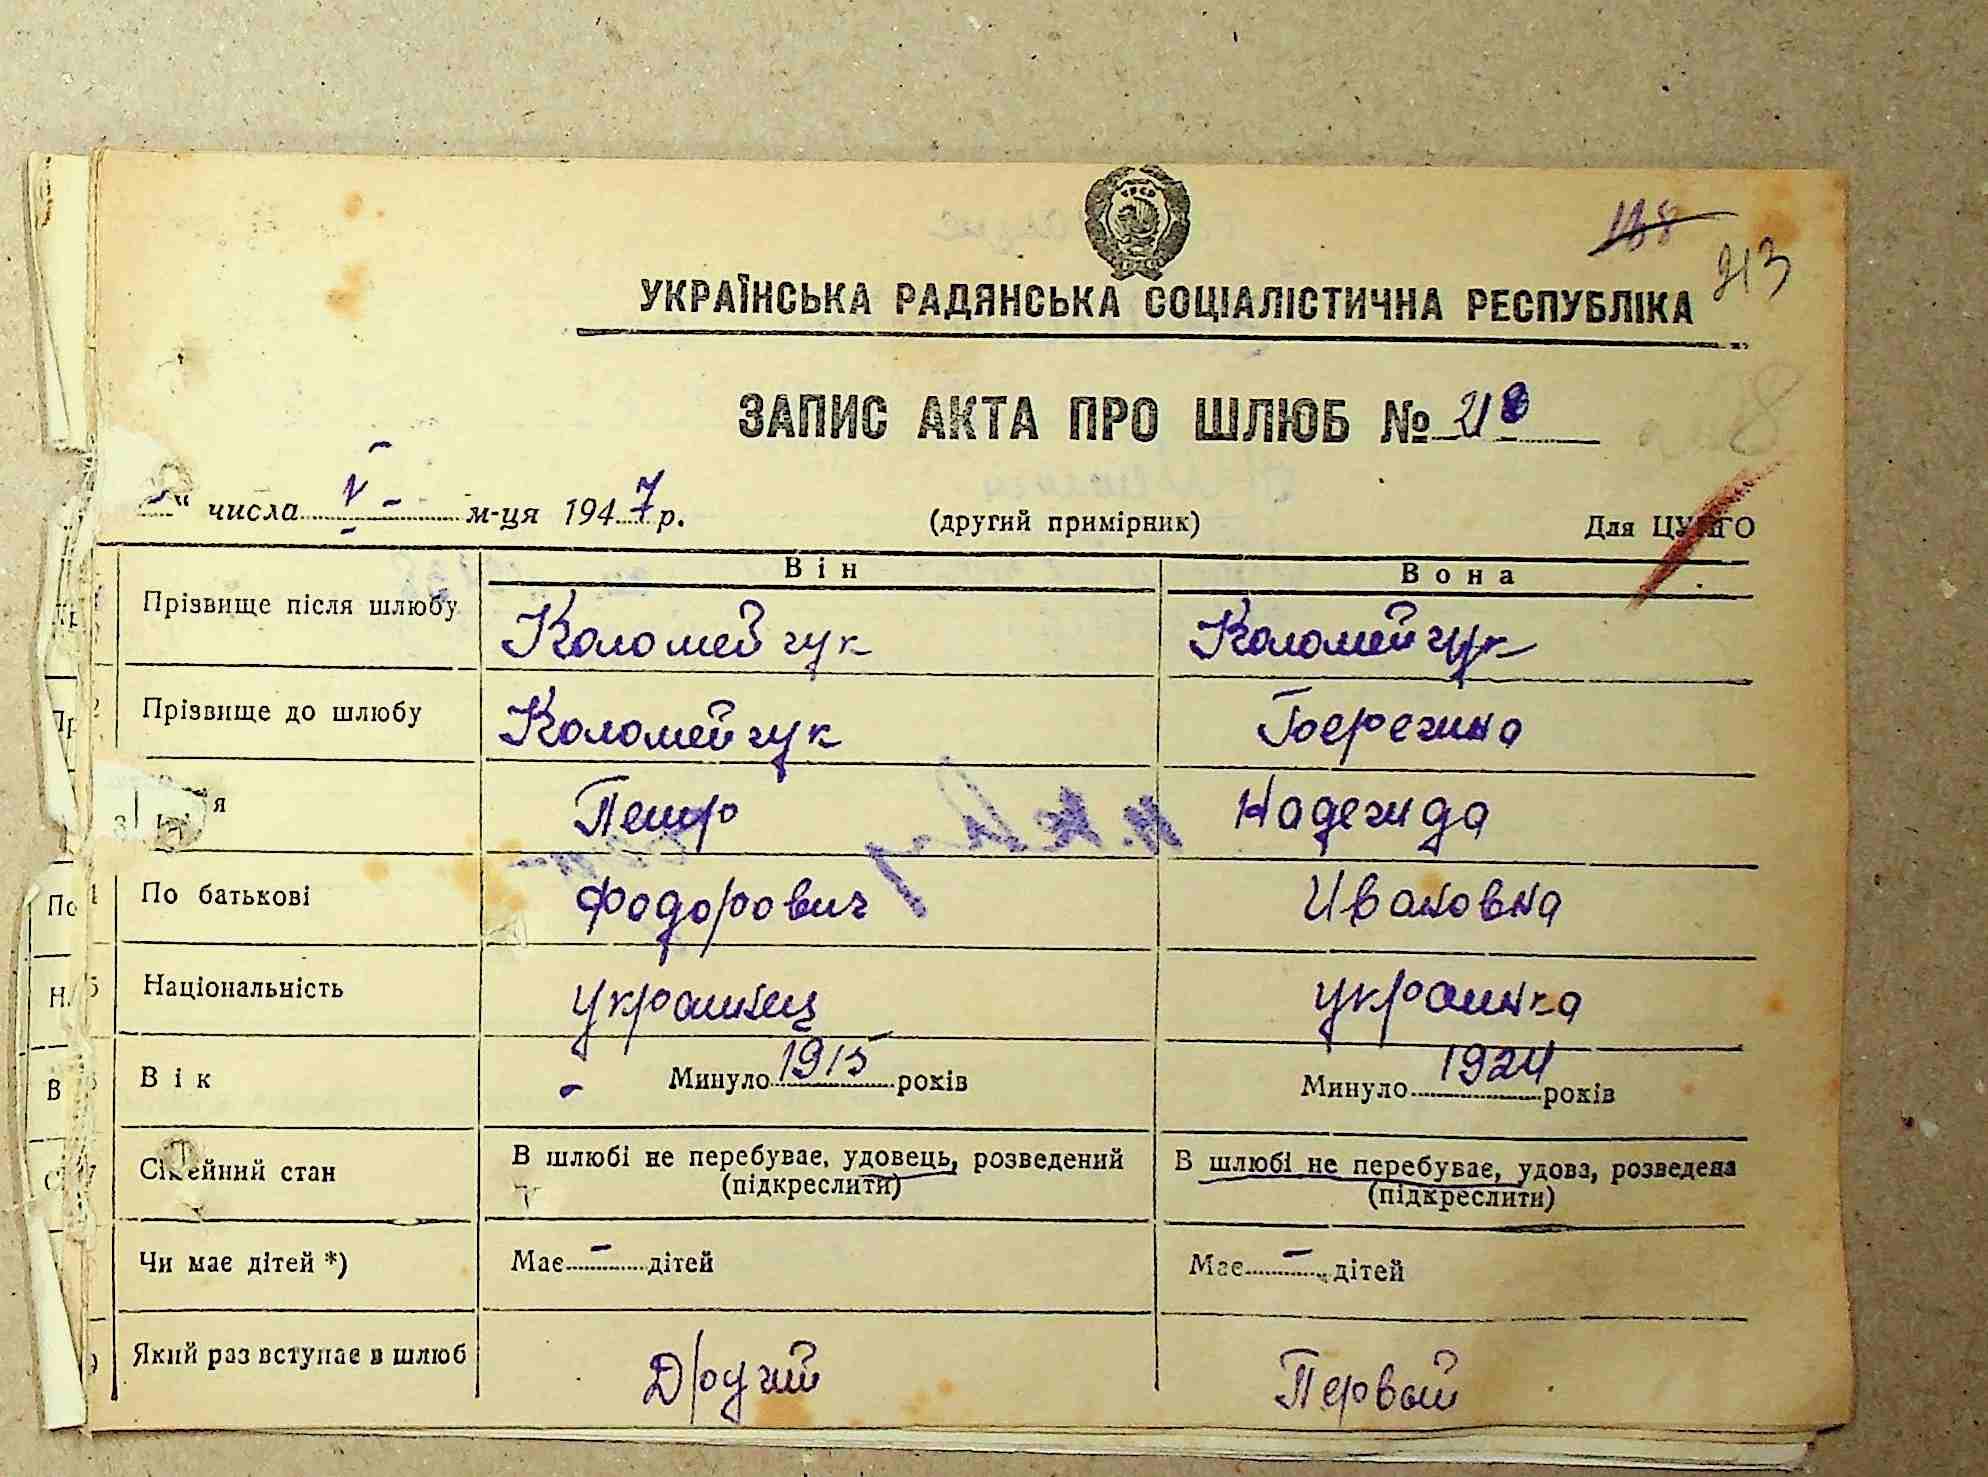 188
213
УКРАЇНСЬКА РАДЯНСЬКА СОЦІАЛІСТИЧНА РЕСПУБЛІКА
ЗАПИС АКТА ПРО ШЛЮБ № 218
" числа V м-ця 1947 р. (другий примірник) Для ЦУ
Він Вона
Прізвище після шлюбу Коломейчук Коломейчук
2 Прізвище до шлюбу Коломейчук Березина
3 я Петр Надежда
По батькові Фодорович Ивановна
5 Національність украинец украинка
Вік - Минуло 1915 років Минуло 1924 років
7 Сімейний стан В шлюбі не перебуває, удовець, розведений В шлюбі не перебуває, удова, розведена
(підкреслити) (підкреслити)
Чи має дітей *) Має - дітей Має - дітей
Який раз вступає в шлюб Другий Первый